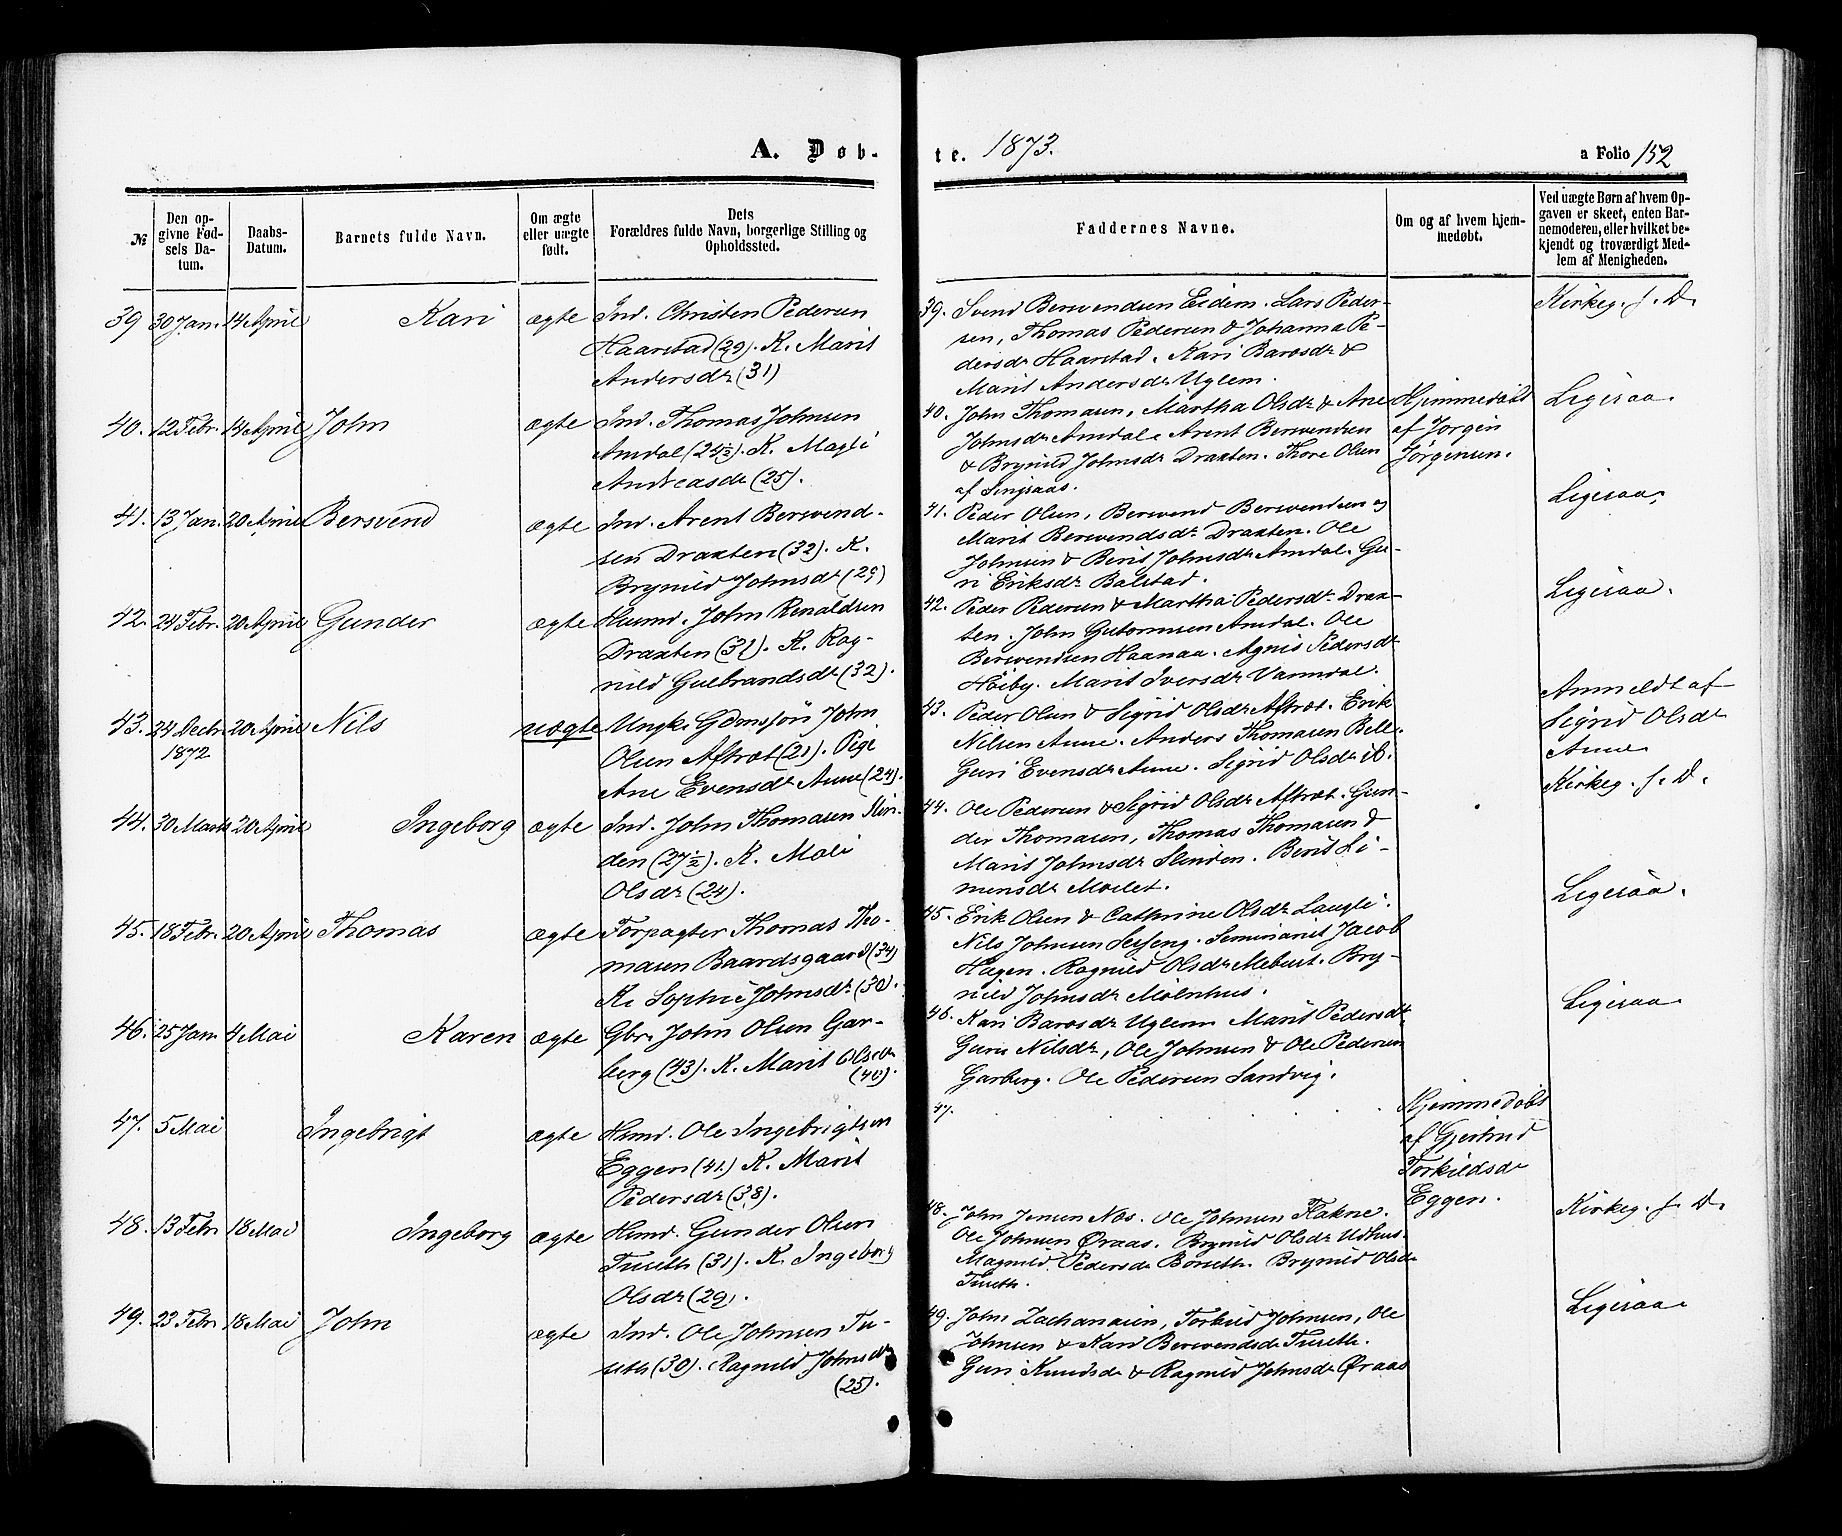 A. Døb-
te. 1873.
a Folio 152
№
Den op-
givne Fød-
sels Da-
tum.
Daabs-
Datum.
Barnets fulde Navn.
Om ægte
eller uægte
født.
Dets
Forældres fulde Navn, borgerlige Stilling og
Opholdssted.
Faddernes Navne.
Om og af hvem hjem-
medøbt.
Ved uægte Børn af hvem Op-
gaven er skeet, enten Bar-
nemoderen, eller hvilket be-
kjendt og troværdigt Med-
lem af Menigheden.
39 30 Jan. 14 April Kari ægte Ind. Christen Pedersen
Haarstad (29). K. Marit
Andersdr (31)
39. Svend Bersvendsen Eidem. Lars Peder-
sen, Thomas Pedersen & Johanna Pe-
dersdr Haarstad. Kari Barosdr &
Marit Andersdr Uglem.
Kirkeg. f. D.
40. 12 Febr. 14 April John ægte Ind. Thomas Johnsen
Amdal (24½). K. Magli
Andreasdr (25).
40. John Thomasen, Martha Olsdr & Ane
Johnsdr Amdal. Arent Bersvendsen
& Brynild Johnsdr Draxten. Thore Olsen
af Singsaas.
Hjemmedøbt
af Jørgen
Jørgensen.
Ligesaa.
41. 13 Jan. 20 April Bersvend ægte Ind. Arent Bersvend-
sen Draxten (32). K.
Brynild Johnsdr (29)
41. Peder Olsen, Bersvend Bersvendsen og
Marit Bersvendsdr Draxten. Ole
Johnsen & Berit Johnsdr Amdal. Gu-
ri Eriksdr Balstad.
Ligesaa.
42. 24 Febr. 20 April Gunder ægte Husmd. John Renaldsen
Draxten (31). K. Rag-
nild Gulbrandsdr (32).
42. Peder Pedersen & Martha Pedersdr Drax-
ten. John Guttormsen Amdal. Ole
Bersvendsen Haanaa. Agnis Pedersdr
Høiby. Marit Iversdr Varmdal.
Ligesaa.
43. 24 Decbr. 20 April Nils uægte Ungk. Gdmsøn John
1872
Olsen Aftret (21). Pige
Ane Evensdr Aune (24).
43. Peder Olsen & Sigrid Olsdr Aftræt. Erik
Nilsen Aune. Anders Thomasen Bell.
Guri Evensdr Aune. Sigrid Olsdr ib.
Anmeldt af
Sigrid Olsdr
Aune
44. 30 Marts 20 April Ingeborg ægte Ind. John Thomasen Slin-
den (27½). K. Mali
Olsdr (24).
44. Ole Pedersen & Sigrid Olsdr Aftræt. Gun-
der Thomasen, Thomas Thomasen &
Marit Johnsdr Slinden. Berit Si-
mensdr Moslet.
Kirkeg. f. D.
45. 18 Febr. 20 April Thomas ægte Forpagter Thomas Tho-
masen Baardsgaard (34)
K. Sophie Johnsdr (30.
45. Erik Olsen & Cathrine Olsdr Langli.
Nils Johnsen Selseng. Seminarist Jacob
Hagen. Ragnild Olsdr Mebust. Bry-
nild Johnsdr Mølnhus.
Ligesaa.
46. 25 Jan. 4 Mai Karen ægte Gbr. John Olsen Gar-
berg (43). K. Marit Olsdr
(40).
46. Kari Barosdr Uglem Marit Pedersdr,
Guru Nilsdr, Ole Johnsen & Ole Pedersen
Garberg. Ole Pedersen Sandvig.
Ligesaa
47. 5 Mai Ingebrigt ægte Husmd. Ole Ingebrigtsen
Eggen (41.) K. Marit
Pedersdr (38).
47.
Hjemmedøbt
af Gjertrud
Torkildsdr
Eggen.
48. 13 Febr 18 Mai Ingeborg ægte Husmd. Gunder Olsen
Tuseth (31). K. Ingeborg
Olsdr (29).
48. John Jensen Nos. Ole Johnsen Flakne.
Ole Johnsen Øraas. Brynild Olsdr Udhus.
Magnild Pedersdr Borseth. Brynild Olsdr
Tuseth.
Kirkeg. f. D.
49. 23 Febr 18 Mai John ægte Ind. Ole Johnsen Tu-
seth (30). Ragnild Johnsdr
(25).
49. John Zachariasen, Torkild Johnsen, Ole
Johnsen & Kari Bersvendsdr Tuseth.
Guri Knudsdr & Ragnild Johnsdr Øraas
Ligesaa